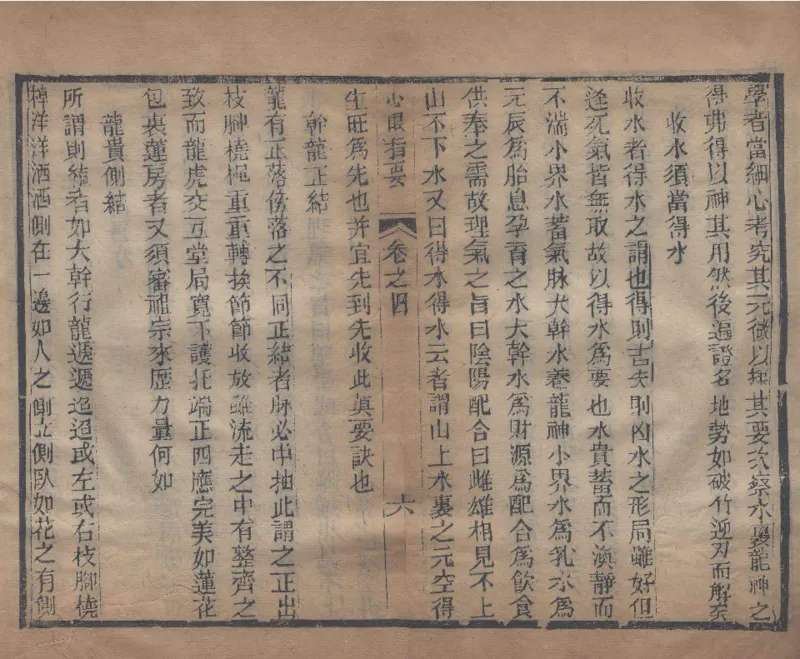 學者當細心考究其元微以握其要次察水裏龍神之
得弗得以神其用然後遍證名地勢如破竹迎刃而解矣
收水須當得水
收水者得水之謂也得則吉失則凶水之形局雖好但
逢死氣皆無取故以得水為要也水貴蓄而不滾靜而
不湍小界水蓄氣脉大幹水養龍神小界水為乳水為
元辰為胎息孕育之水大幹水為財源為配合為飲食
供奉之需故理氣之旨曰陰陽配合曰雌雄相見不上
山不下水又曰得水得水云者謂山上水裏之元空得
心眼指要 卷之四 六
生旺為先也并宜先到先收此真要訣也
幹龍正結
龍有正落傍落之不同正結者脉必中抽此謂之正出
枝脚橈棹重重轉換節節收放雖流走之中有整齊之
致而龍虎交互堂局寬下護托端正四應完美如蓮花
包裹蓮房者又須審祖宗來歷力量何如
龍貴側結
所謂側結者如大幹行龍遞遞迢迢或左或右枝脚橈
棹洋洋洒洒側在一邊如人之側立側臥如花之有側